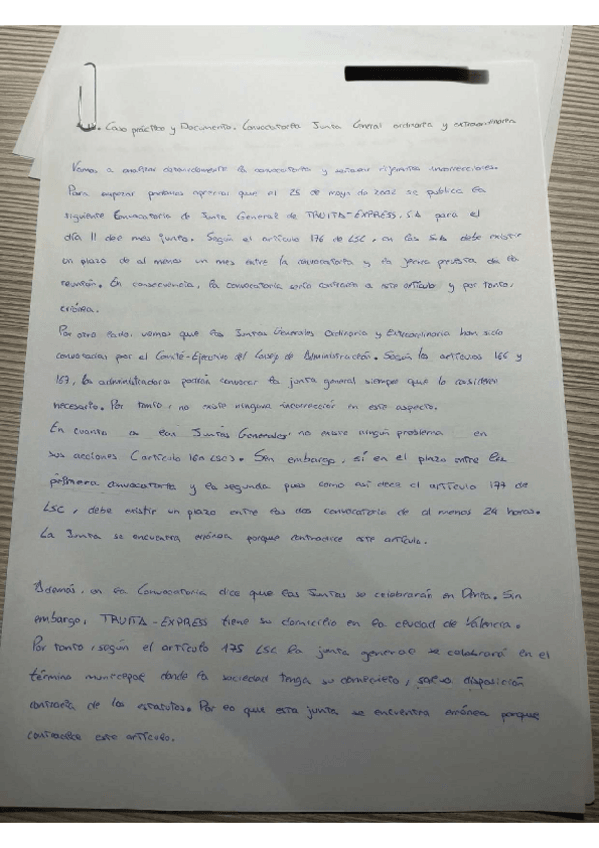 . Caso práctico y Documento. Convocatoria Junta General ordinaria y extraordinaria
Vamos a analizar detenidamente la convocatoria y señalar siguientes incorrecciones.
Para empezar podemos apreciar que el 25 de mayo de 2012 se publica la
siguiente Convocatoria de Junta General de TRUITA-EXPRESS, SA para el
día 11 del mes junio. Según el artículo 176 de LSC, en las SA debe existir
un plazo de al menos un mes entre la convocatoria y la fecha prevista de la
reunión. En consecuencia, la convocatoria sería contraria a este artículo y por tanto,
errónea.
Por otro lado, vemos que las Juntas Generales Ordinaria y Extraordinaria han sido
convocadas por el Comité-Ejecutivo del Consejo de Administración. Según los artículos 166 y
167, los administradores podrán convocar la junta general siempre que lo consideren
necesario. Por tanto, no existe ninguna incorrección en este aspecto.
En cuanto a las Juntas Generales, no existe ningún problema en
sus acciones (artículo 160 LSC). Sin embargo, sí en el plazo entre la
primera convocatoria y la segunda pues como así dice el artículo 177 de
LSC, debe existir un plazo entre las dos convocatoria de al menos 24 horas.
La Junta se encuentra errónea porque contradice este artículo.
Además, en la Convocatoria dice que las Juntas se celebrarán en Denia. Sin
embargo, TRUITA-EXPRESS tiene su domicilio en la ciudad de Valencia.
Por tanto, según el artículo 175 LSC la junta general se celebrará en el
término municipal donde la sociedad tenga su domicilio, salvo disposición
contraria de los estatutos. Por lo que esta junta se encuentra errónea porque
contradice este artículo.